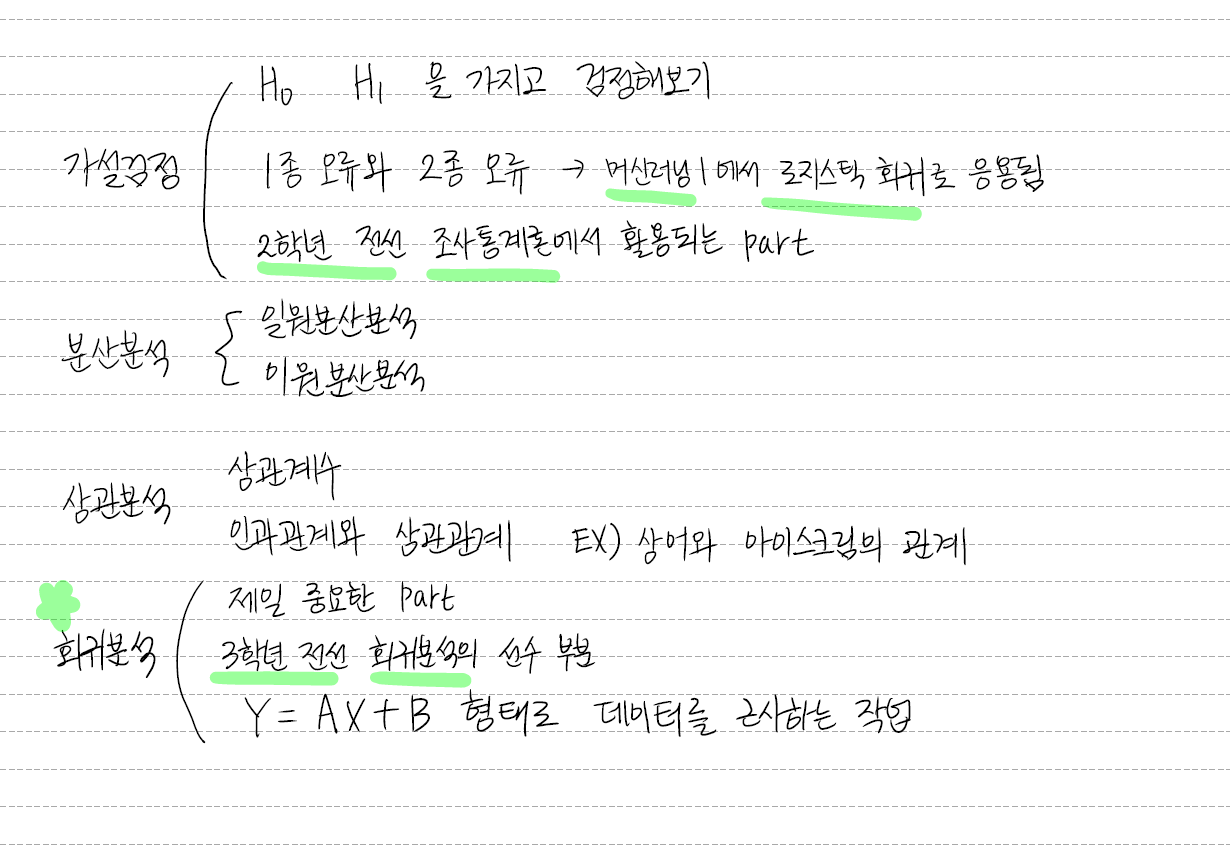 H₀ H₁ 을 가지고 검정해보기
가설검정
1종 오류와 2종 오류 → 머신러닝1에서 로지스틱 회귀로 응용됨
2학년 전선 조사통계론에서 활용되는 part
일원분산분석
분산분석
이원분산분석
상관계수
상관분석
인과관계와 상관관계 EX) 상어와 아이스크림의 관계
제일 중요한 part
회귀분석
3학년 전선 회귀분석의 선수 부분
Y = AX + B 형태로 데이터를 근사하는 작업